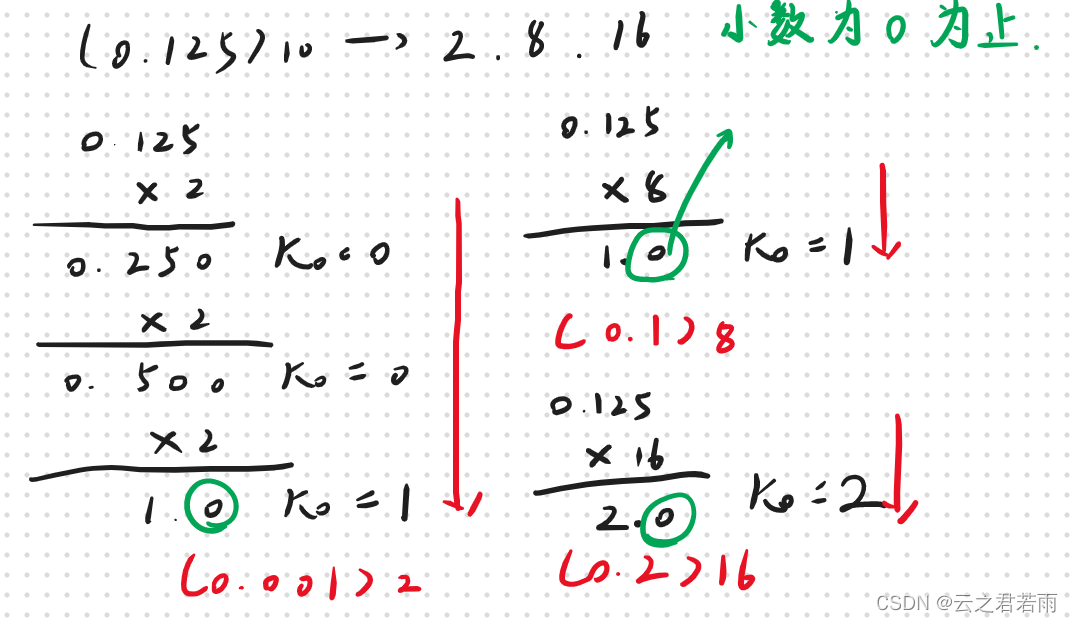 (0.125)10 → 2. 8. 16
小数为0为止.
0.125
× 2
0.250 K0=0
× 2
0.500 K0=0
× 2
1.0 K0=1
(0.001)2
0.125
× 8
1.0 K0=1
(0.1)8
0.125
× 16
2.0 K0=2
(0.2)16
CSDN @云之君若雨